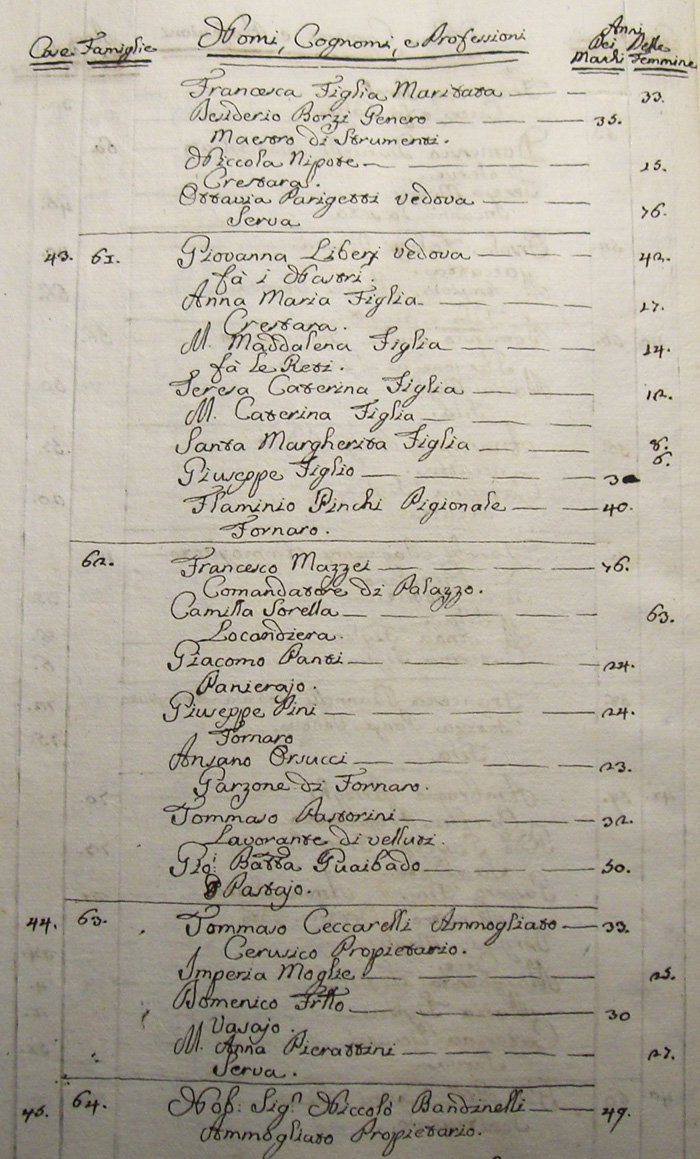 Case Famiglie Nomi, Cognomi, e Professioni Anni Dei Maschi Delle Femmine
Francesca Figlia Maritata 33.
Desiderio Borzi Genero 35.
Maestro di Strumenti.
Niccola Nipote 15.
Crestara.
Ottavia Parigetti vedova 76.
Serva
43. 61. Giovanna Liberi vedova 42.
fà i Nastri.
Anna Maria Figlia 17.
Crestara.
M. Maddalena Figlia 14.
fà le Reti.
Teresa Caterina Figlia 12.
M. Caterina Figlia
Santa Margherita Figlia 8.
6.
Giuseppe Figlio 3
Flaminio Pinchi Pigionale 40.
Fornaro.
62. Francesco Mazzei 76.
Comandatore di Palazzo.
Camilla Sorella 63.
Locandiera.
Giacomo Panti 24.
Panierajo.
Giuseppe Pini 24.
Fornaro
Ansano Orsucci 23.
Garzone di Fornaro.
Tommaso Pastorini 32.
Lavorante di velluti.
Gio: Batta Guaibado 50.
Pastajo.
44. 63. Tommaso Ceccarelli Ammogliato 33.
Cerusico Propietario.
Imperia Moglie 25.
Domenico Frtto 30
Vasajo.
M. Anna Pierattini 27.
Serva.
45. 64. Nob: Sig.r Niccolò Bandinelli 49.
Ammogliato Propietario.